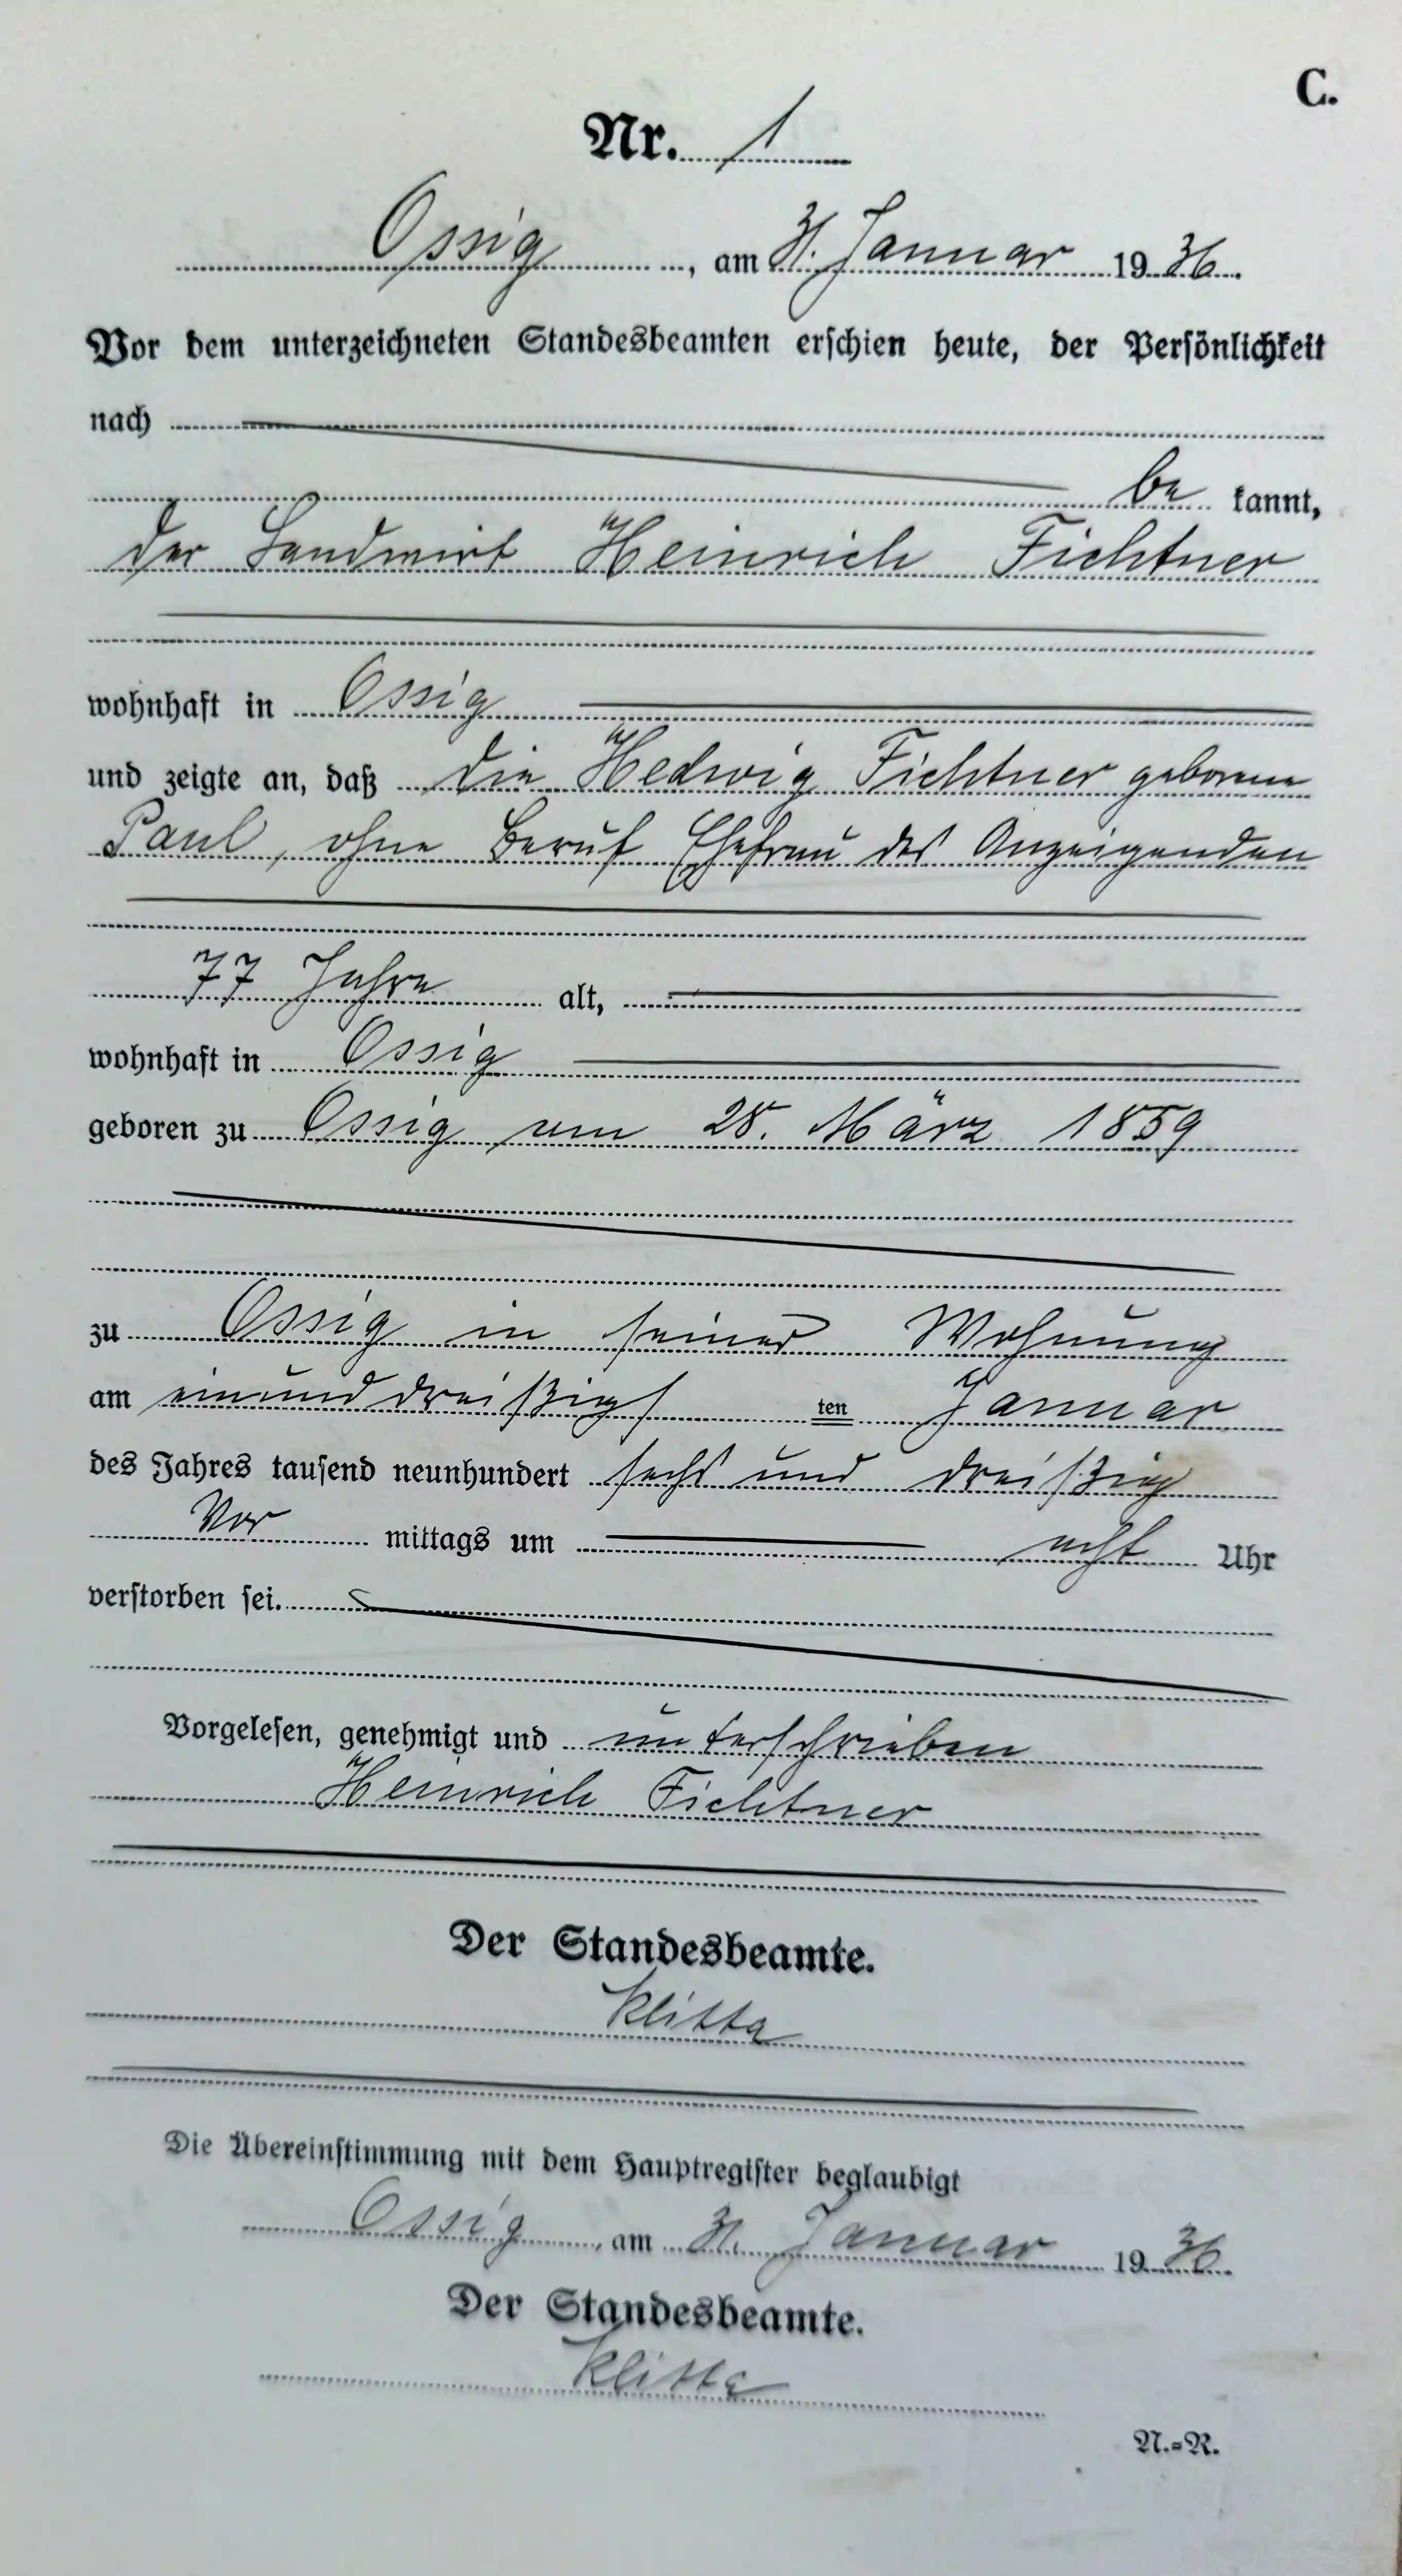 C.
Nr. 1
Ossig, am 31. Januar 1936.
Vor dem unterzeichneten Standesbeamten erschien heute, der Persönlichkeit
nach
be kannt,
der Landwirt Heinrich Fichtner
wohnhaft in Ossig
und zeigte an, daß die Hedwig Fichtner geborene
Paul, ohne Beruf Ehefrau des Anzeigenden
77 Jahre alt,
wohnhaft in Ossig
geboren zu Ossig am 28. März 1859
zu Ossig in seiner Wohnung
am einunddreißigs ten Januar
des Jahres tausend neunhundert sechs und dreißig
Vor mittags um acht Uhr
verstorben sei.
Vorgelesen, genehmigt und unterschrieben
Heinrich Fichtner
Der Standesbeamte.
Klitta
Die Übereinstimmung mit dem Hauptregister beglaubigt
Ossig, am 31. Januar 1936.
Der Standesbeamte.
Klitta
N.=R.